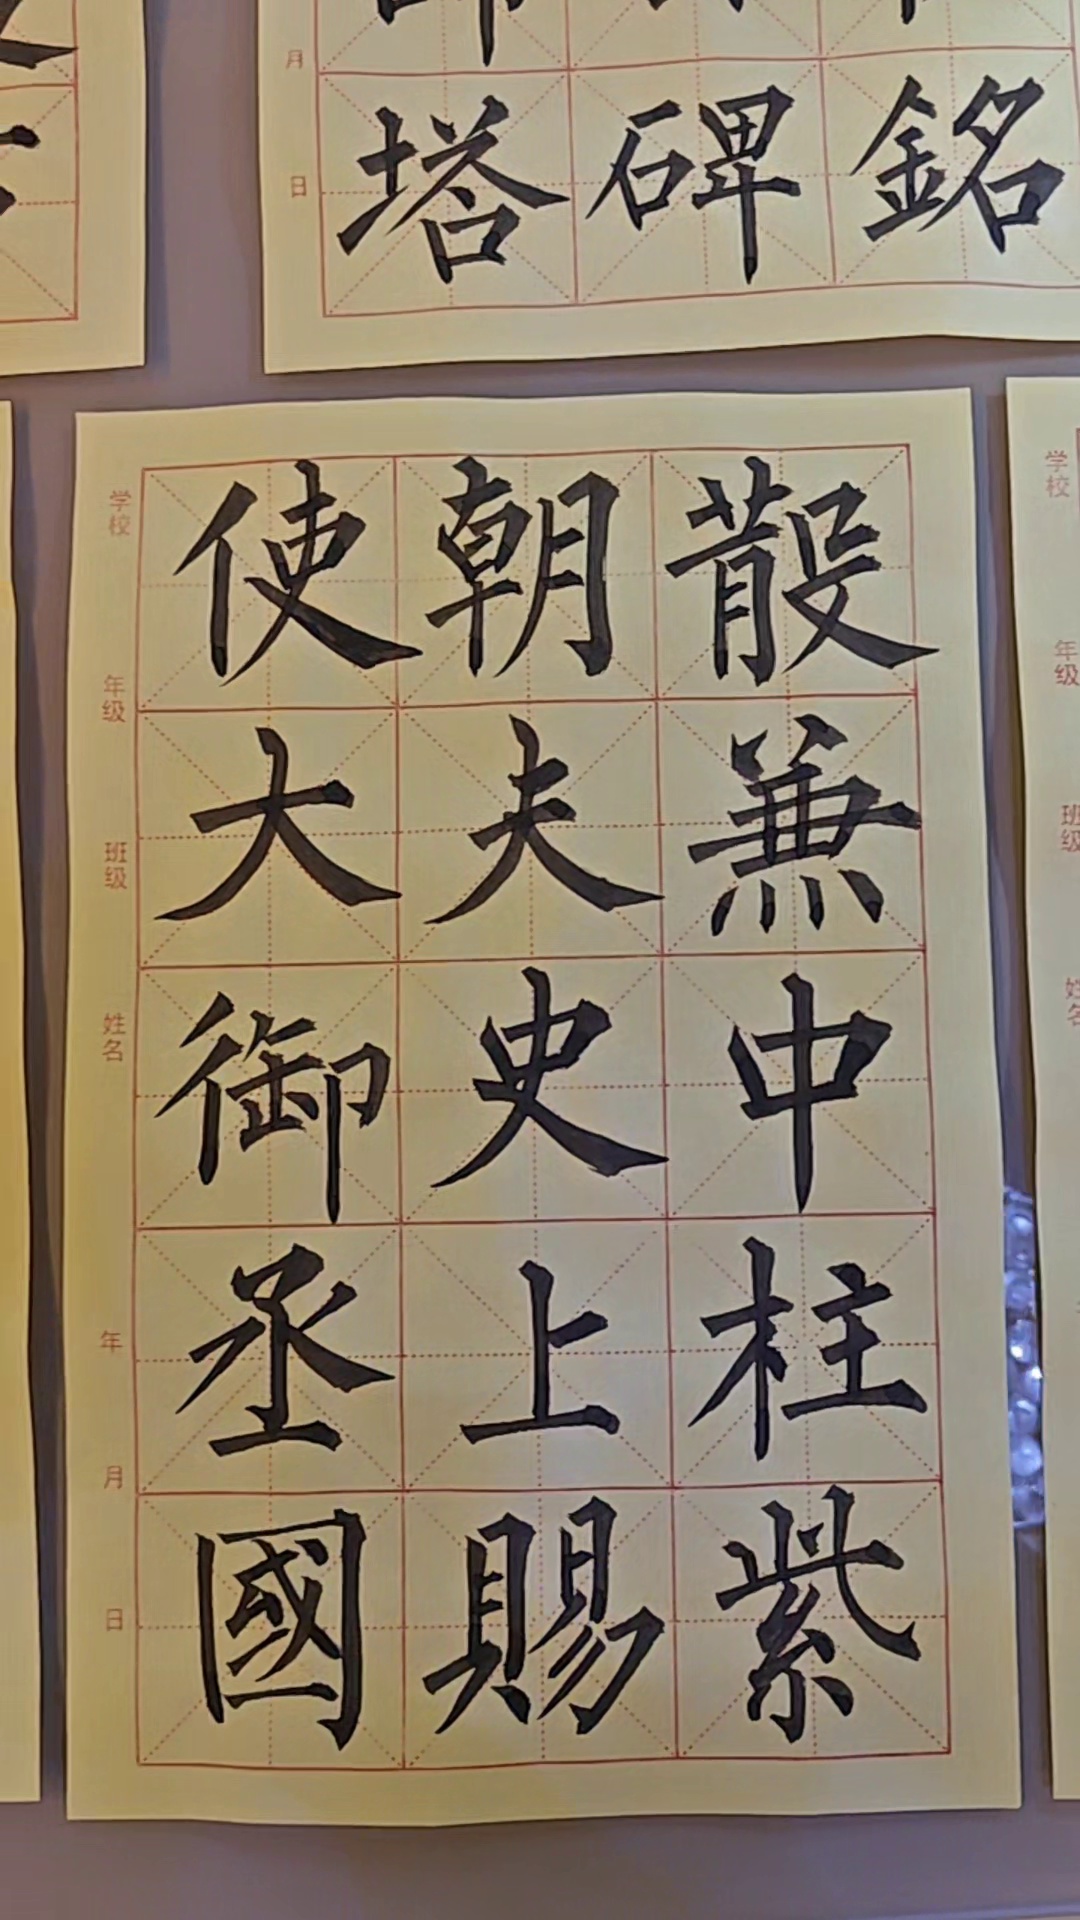 月
日
塔碑銘
学校
年级
班级
姓名
年
月
日
使朝散
大夫兼
御史中
丞上柱
國賜紫
学校
年级
班级
姓名